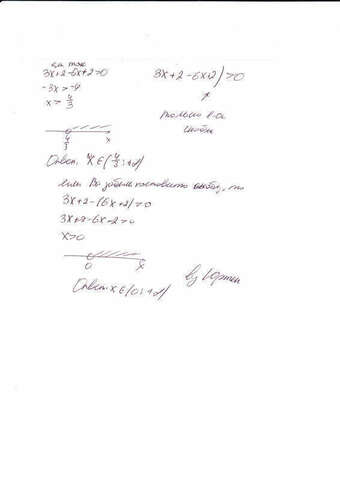 3x+2-6x+2>0
-3x>-4
x > 4/3
3x+2-6x+2)>0
только 1-а
скобка
4/3 x
Ответ: x ∈ (4/3; +∞)
если Вы забыли поставить скобку, то
3x+2-(6x+2)>0
3x+2-6x-2>0
x>0
0 x
Ответ x ∈ (0; +∞)
by